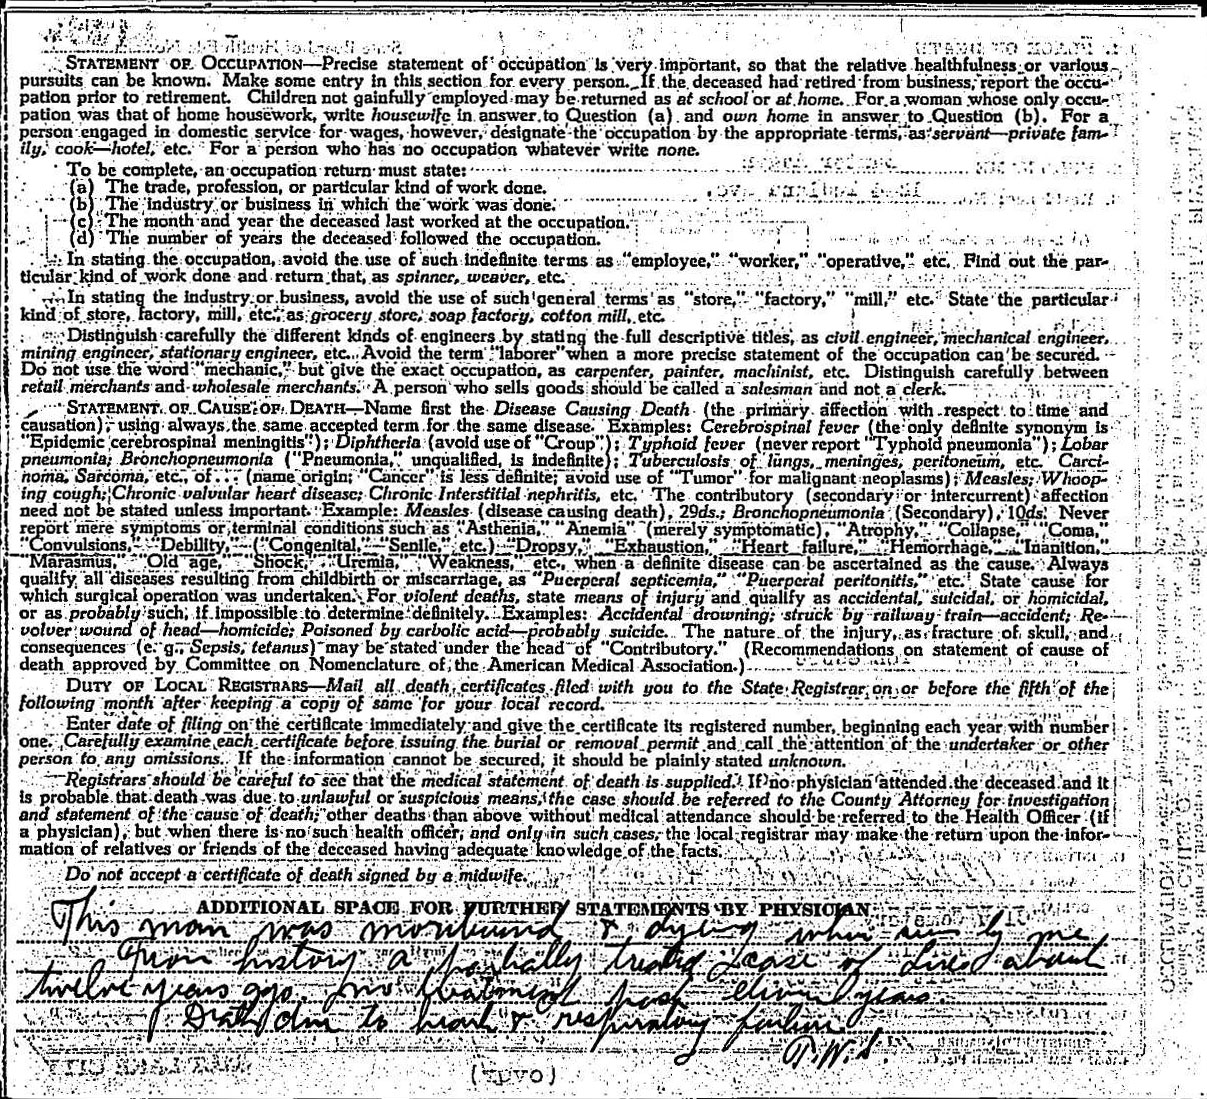 STATEMENT OF OCCUPATION—Precise statement of occupation is very important, so that the relative healthfulness or various
pursuits can be known. Make some entry in this section for every person. If the deceased had retired from business, report the occu-
pation prior to retirement. Children not gainfully employed may be returned as at school or at home. For a woman whose only occu-
pation was that of home housework, write housewife in answer to Question (a) and own home in answer to Question (b). For a
person engaged in domestic service for wages, however, designate the occupation by the appropriate terms, as servant—private fam-
ily, cook—hotel, etc. For a person who has no occupation whatever write none.
To be complete, an occupation return must state:
(a) The trade, profession, or particular kind of work done.
(b) The industry or business in which the work was done.
(c) The month and year the deceased last worked at the occupation.
(d) The number of years the deceased followed the occupation.
In stating the occupation, avoid the use of such indefinite terms as "employee," "worker," "operative," etc. Find out the par-
ticular kind of work done and return that, as spinner, weaver, etc.
In stating the industry or business, avoid the use of such general terms as "store," "factory," "mill," etc. State the particular
kind of store, factory, mill, etc., as grocery store, soap factory, cotton mill, etc.
Distinguish carefully the different kinds of engineers by stating the full descriptive titles, as civil engineer, mechanical engineer,
mining engineer, stationary engineer, etc. Avoid the term "laborer" when a more precise statement of the occupation can be secured.
Do not use the word "mechanic," but give the exact occupation, as carpenter, painter, machinist, etc. Distinguish carefully between
retail merchants and wholesale merchants. A person who sells goods should be called a salesman and not a clerk.
STATEMENT OF CAUSE OF DEATH—Name first the Disease Causing Death (the primary affection with respect to time and
causation), using always the same accepted term for the same disease. Examples: Cerebrospinal fever (the only definite synonym is
"Epidemic cerebrospinal meningitis"); Diphtheria (avoid use of "Croup"); Typhoid fever (never report "Typhoid pneumonia"); Lobar
pneumonia; Bronchopneumonia ("Pneumonia," unqualified, is indefinite); Tuberculosis of lungs, meninges, peritoneum, etc. Carci-
noma, Sarcoma, etc., of ... (name origin; "Cancer" is less definite; avoid use of "Tumor" for malignant neoplasms); Measles; Whoop-
ing cough; Chronic valvular heart disease; Chronic Interstitial nephritis, etc. The contributory (secondary or intercurrent) affection
need not be stated unless important. Example: Measles (disease causing death), 29ds.; Bronchopneumonia (Secondary), 10ds. Never
report mere symptoms or terminal conditions such as "Asthenia," "Anemia" (merely symptomatic), "Atrophy," "Collapse," "Coma,"
"Convulsions," "Debility," ("Congenital," "Senile," etc.) "Dropsy," "Exhaustion," "Heart failure," "Hemorrhage," "Inanition,"
"Marasmus," "Old age," "Shock," "Uremia," "Weakness," etc., when a definite disease can be ascertained as the cause. Always
qualify all diseases resulting from childbirth or miscarriage, as "Puerperal septicemia," "Puerperal peritonitis," etc. State cause for
which surgical operation was undertaken. For violent deaths, state means of injury and qualify as accidental, suicidal, or homicidal,
or as probably such, if impossible to determine definitely. Examples: Accidental drowning; struck by railway train—accident; Re-
volver wound of head—homicide; Poisoned by carbolic acid—probably suicide. The nature of the injury, as fracture of skull, and
consequences (e. g., Sepsis, tetanus) may be stated under the head of "Contributory." (Recommendations on statement of cause of
death approved by Committee on Nomenclature of the American Medical Association.)
DUTY OF LOCAL REGISTRARS—Mail all death certificates filed with you to the State Registrar on or before the fifth of the
following month after keeping a copy of same for your local record.
Enter date of filing on the certificate immediately and give the certificate its registered number, beginning each year with number
one. Carefully examine each certificate before issuing the burial or removal permit and call the attention of the undertaker or other
person to any omissions. If the information cannot be secured, it should be plainly stated unknown.
Registrars should be careful to see that the medical statement of death is supplied. If no physician attended the deceased and it
is probable that death was due to unlawful or suspicious means, the case should be referred to the County Attorney for investigation
and statement of the cause of death; other deaths than above without medical attendance should be referred to the Health Officer (if
a physician), but when there is no such health officer, and only in such cases, the local registrar may make the return upon the infor-
mation of relatives or friends of the deceased having adequate knowledge of the facts.
Do not accept a certificate of death signed by a midwife.
ADDITIONAL SPACE FOR FURTHER STATEMENTS BY PHYSICIAN
This man was moribund & dying when seen by me.
From history a partially treated case of Lues about
twelve years ago. no treatment past eleven years.
Death due to heart & respiratory failure
T.W.S.